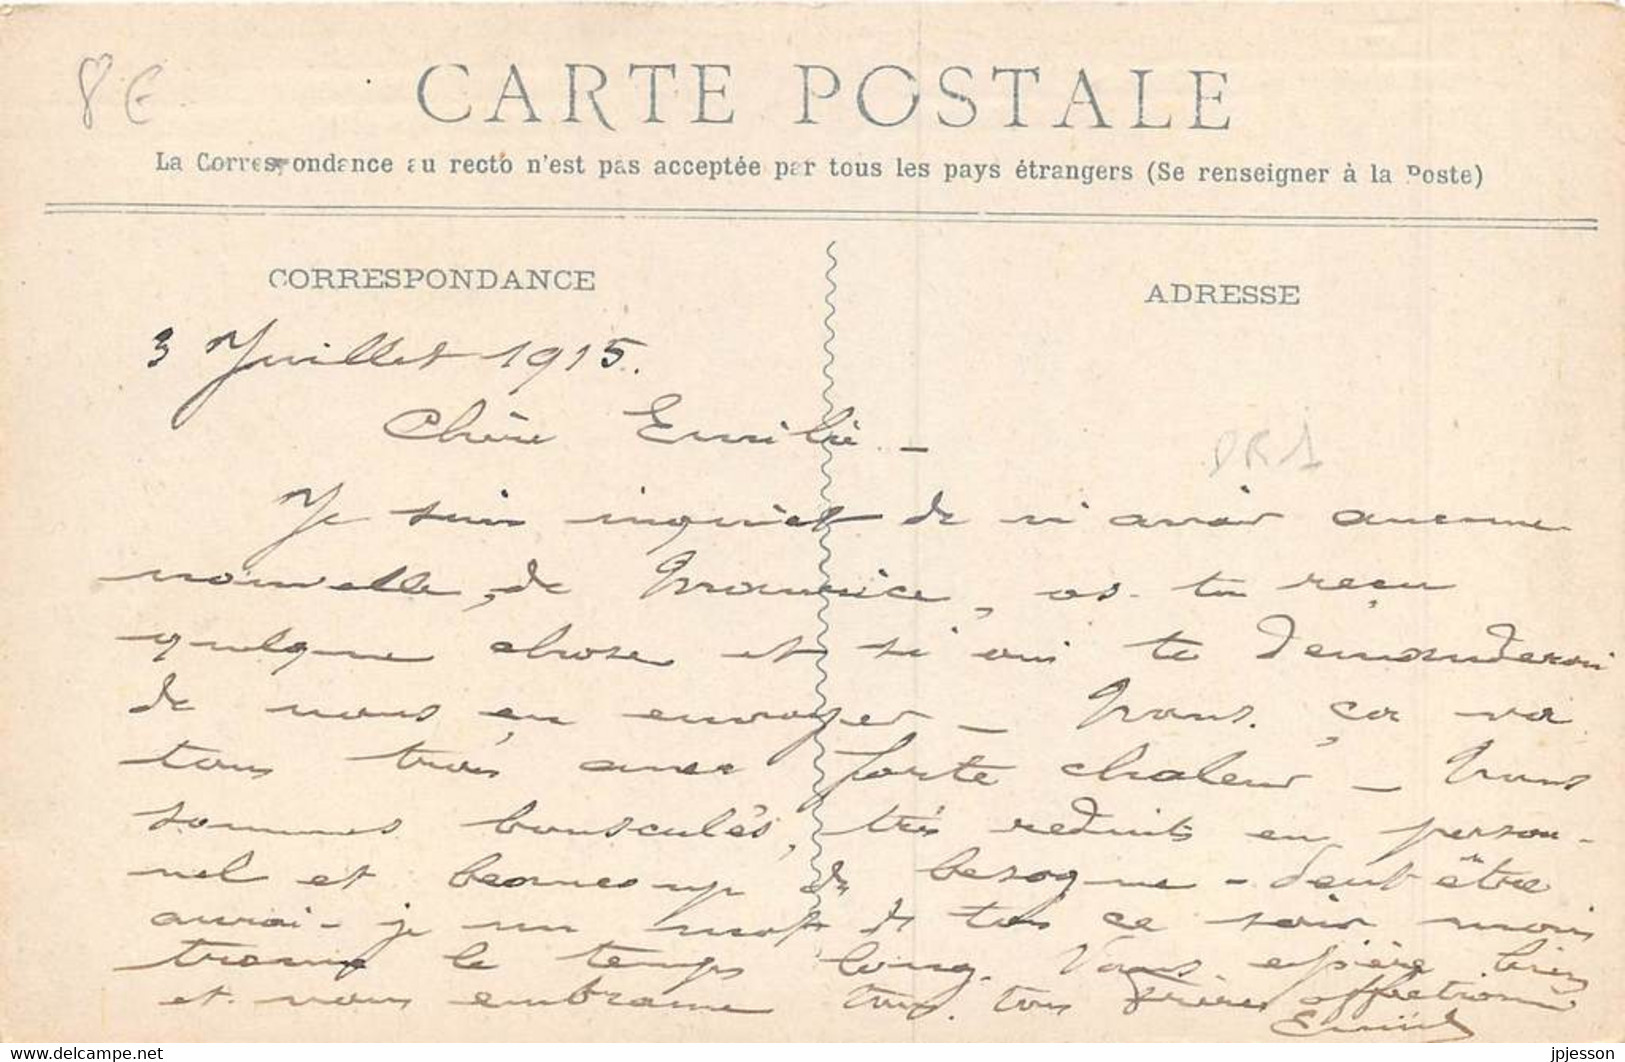 8 €
CARTE POSTALE
La Correspondance au recto n'est pas acceptée par tous les pays étrangers (Se renseigner à la Poste)
CORRESPONDANCE
ADRESSE
3 Juillet 1915.
Chère Emilie -
DR1
Je suis inquiet de n'avoir aucune
nouvelle, de Maurice, as-tu reçu
quelque chose et si oui te demanderai
de nous en envoyer - Nous ça va
tous trois avec forte chaleur - Nous
sommes bousculés, très reduits en person-
nel et beaucoup de besogne - Peut être
aurai-je un mot de toi ce soir mais
trouve le temps long. Vous espère bien
et vous embrasse tous. ton frère affectionné
delcampe.net
jpjesson